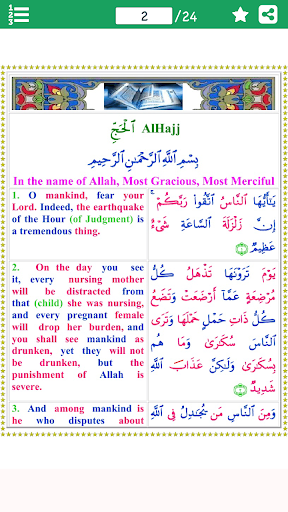 1
2
3
2 /24
ٱلْحَجِّ AlHajj
بِسْمِ ٱللَّهِ ٱلرَّحْمَٰنِ ٱلرَّحِيمِ
In the name of Allah, Most Gracious, Most Merciful
1. O mankind, fear your
Lord. Indeed, the earthquake
of the Hour (of Judgment) is
a tremendous thing.
يَٰٓأَيُّهَا ٱلنَّاسُ ٱتَّقُوا۟ رَبَّكُمْ ۚ
إِنَّ زَلْزَلَةَ ٱلسَّاعَةِ شَىْءٌ
عَظِيمٌ ١
2. On the day you see
it, every nursing mother
will be distracted from
that (child) she was nursing,
and every pregnant female
will drop her burden, and
you shall see mankind as
drunken, yet they will not
be drunken, but the
punishment of Allah is
severe.
يَوْمَ تَرَوْنَهَا تَذْهَلُ كُلُّ
مُرْضِعَةٍ عَمَّآ أَرْضَعَتْ وَتَضَعُ
كُلُّ ذَاتِ حَمْلٍ حَمْلَهَا وَتَرَى
ٱلنَّاسَ سُكَٰرَىٰ وَمَا هُم
بِسُكَٰرَىٰ وَلَٰكِنَّ عَذَابَ ٱللَّهِ
شَدِيدٌ ٢
3. And among mankind is
he who disputes about
وَمِنَ ٱلنَّاسِ مَن يُجَٰدِلُ فِى ٱللَّهِ